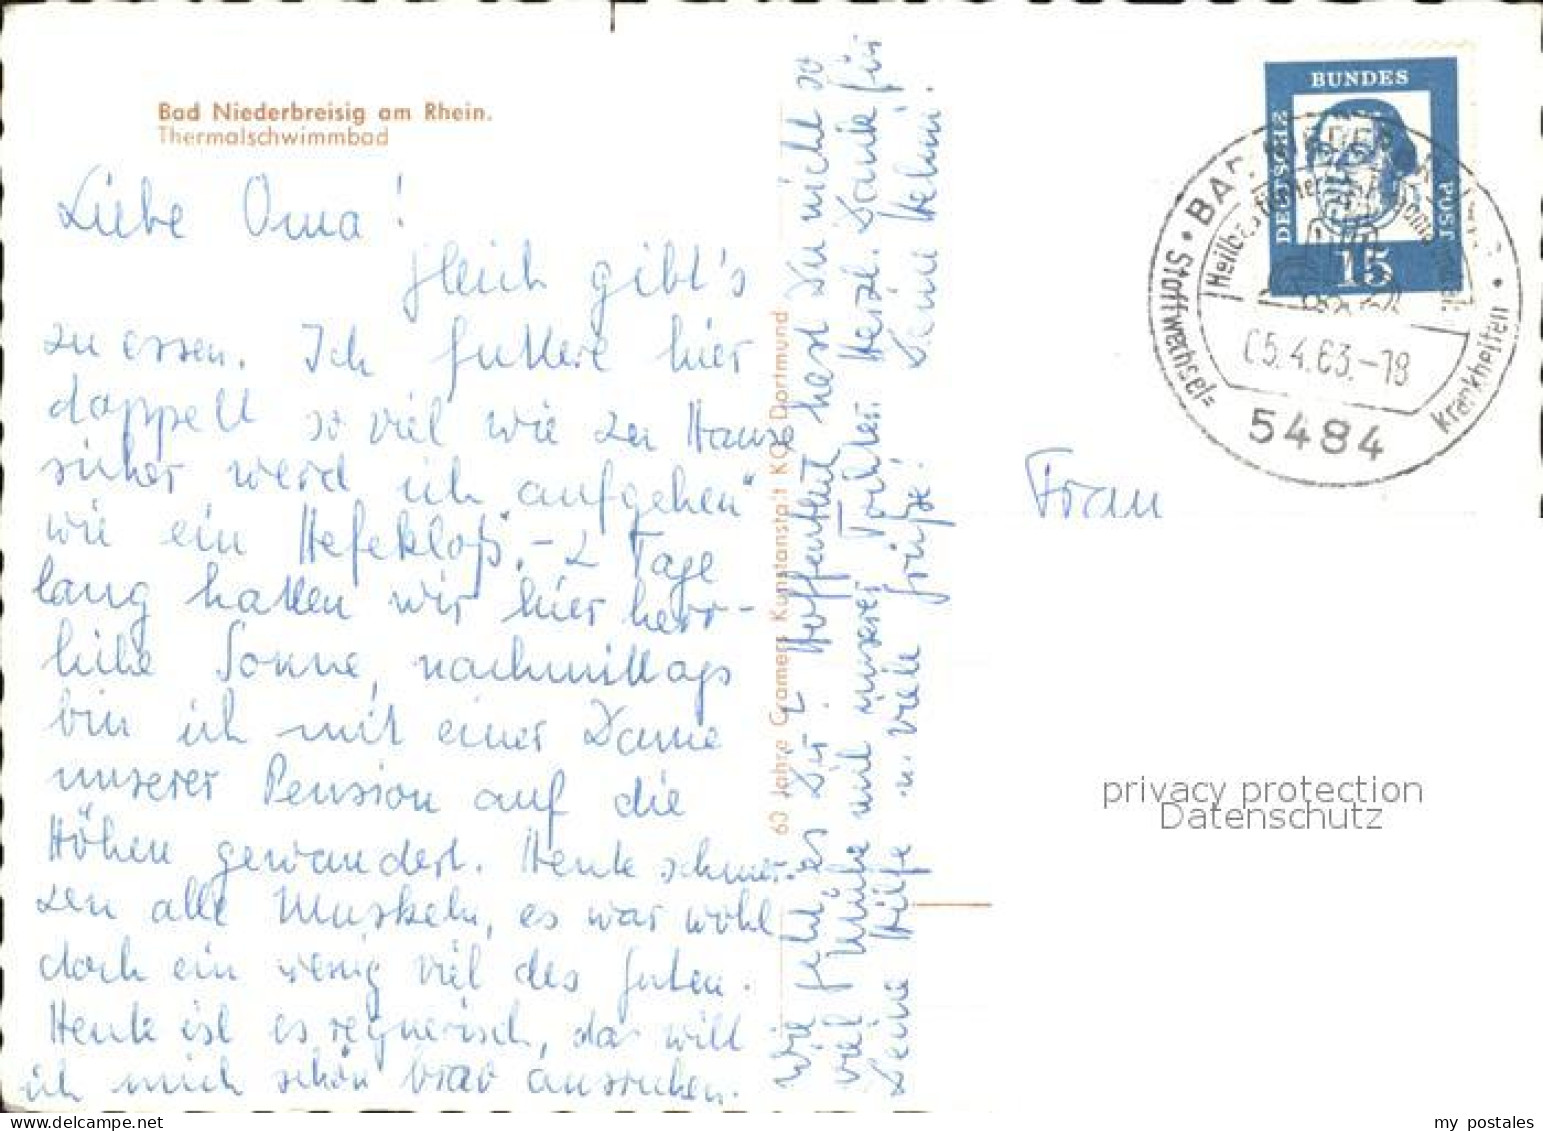 Bad Niederbreisig am Rhein.
Thermalschwimmbad
Liebe Oma!
Gleich gibt's
zu essen. Ich futtere hier
doppelt so viel wie zu Hause
sicher werd ich „aufgehen"
wie ein Hefekloß". – 2 Tage
lang hatten wir hier herr-
liche Sonne, nachmittags
bin ich mit einer Dame
unserer Pension auf die
Höhen gewandert. Heute schmer-
zen alle Muskeln, es war wohl
doch ein wenig viel des Guten.
Heute ist es regnerisch, da will
ich mich schön brav ausruhen.
Wie geht es Dir? Hoffentlich hast Du nicht so
viel Mühe mit unserer Tochter. Herzl. Dank für
Deine Hilfe u. viele Grüße. Deine
60 Jahre Cramers Kunstanstalt KG Dortmund
DEUTSCHE BUNDES POST
15
BAD NIEDERBREISIG
Heilbad für Herz
Stoffwechsel-
Krankheiten
05.4.63.-18
5484
Frau
privacy protection
Datenschutz
my postales